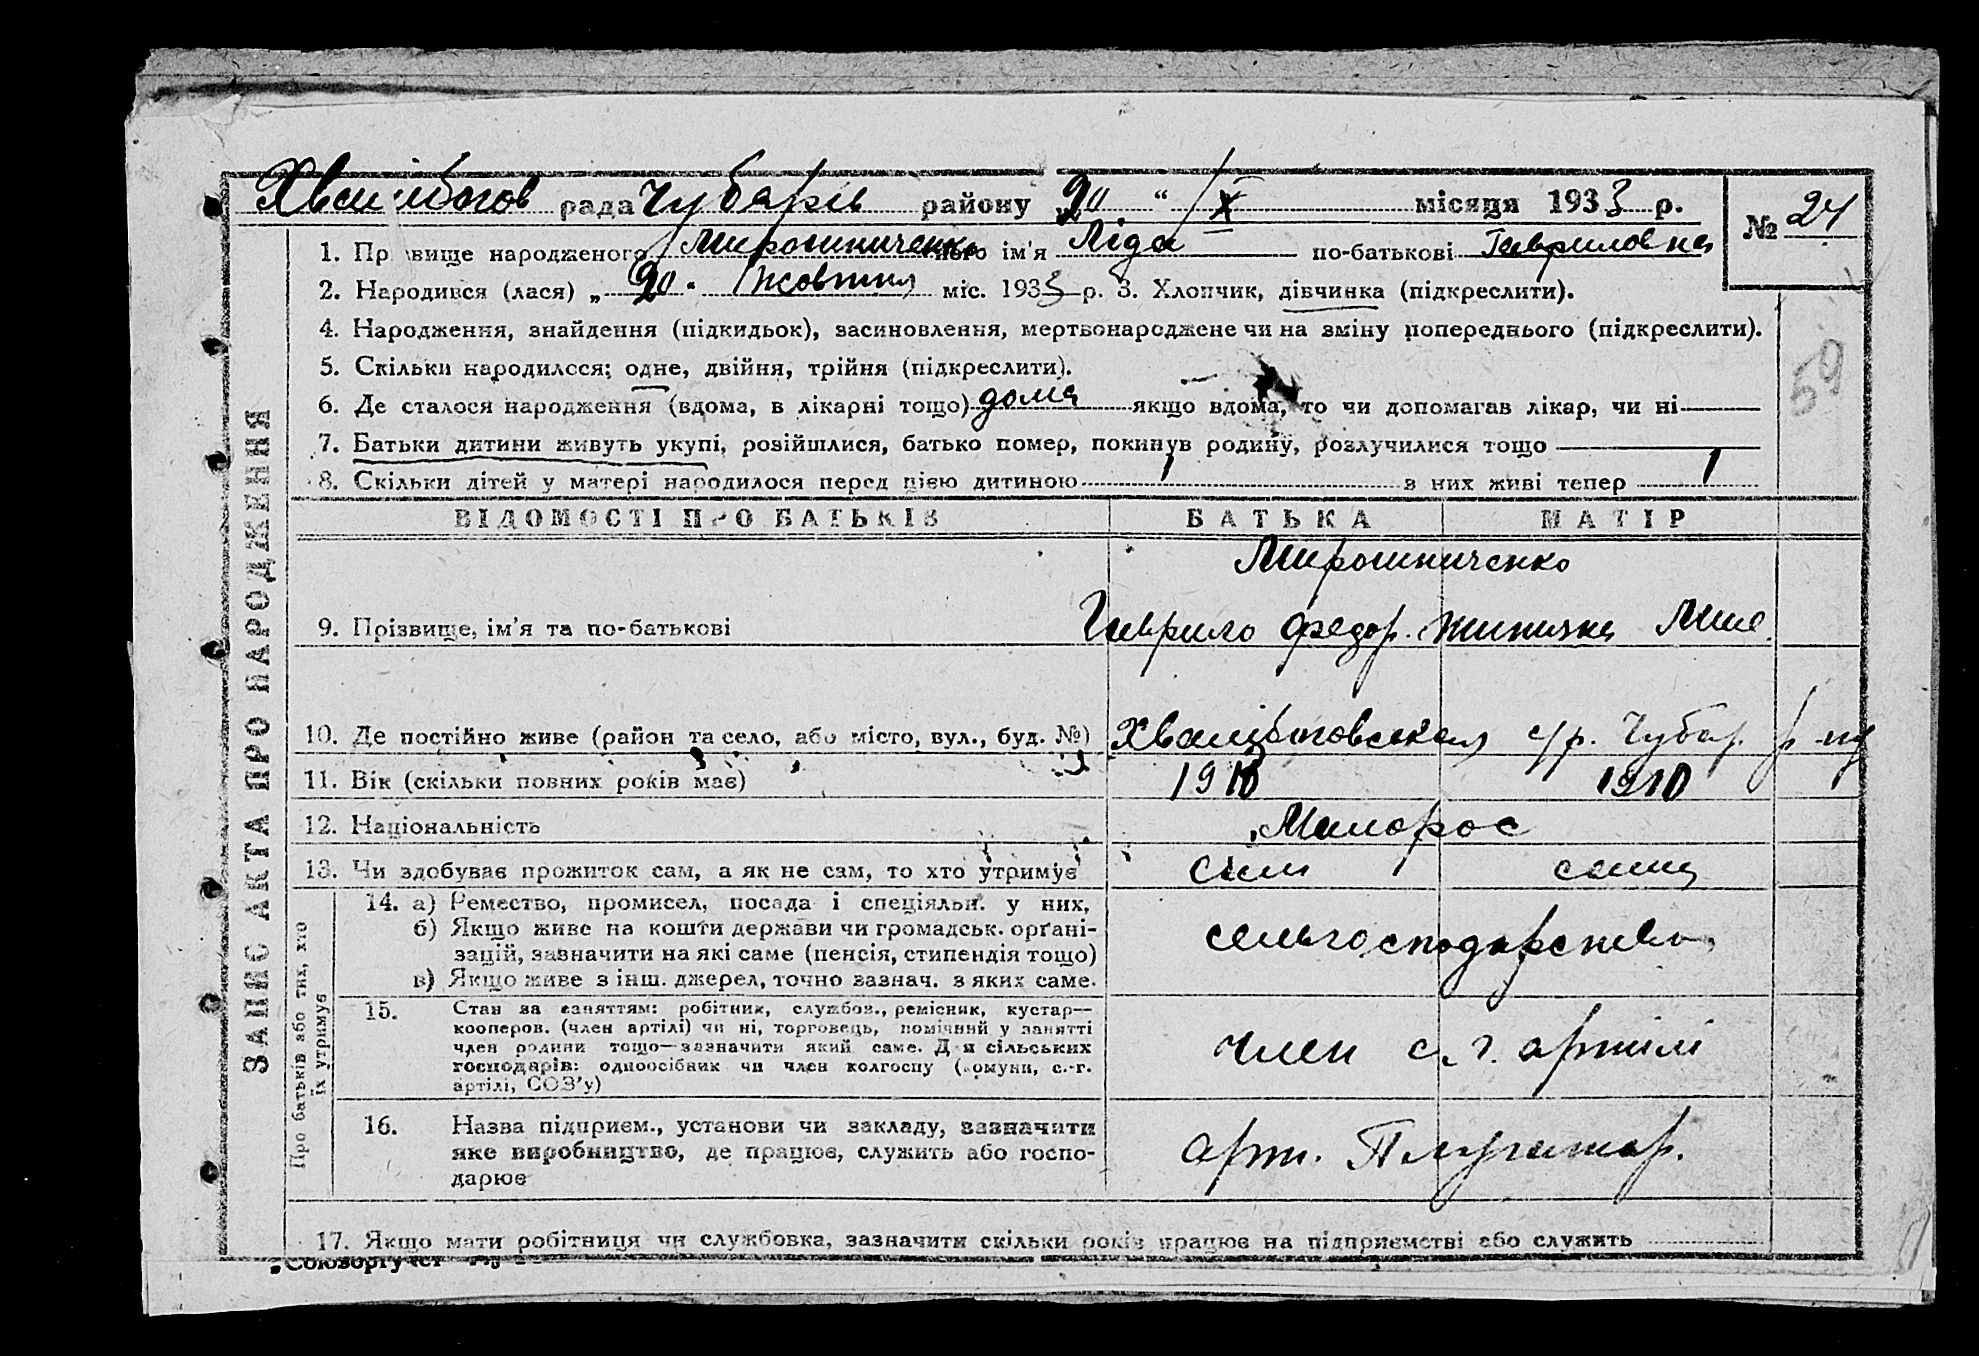 рада Чубарів району 20 " X місяця 1933 р.
№ 24
1. Прізвище народженого Мирошниченко його ім'я Ліда по-батькові Гавриловна
2. Народився (лася) „ 20 " жовтня міс. 1933 р. 3. Хлопчик, дівчинка (підкреслити).
4. Народження, знайдення (підкидьок), засиновлення, мертвонароджене чи на зміну попереднього (підкреслити).
5. Скільки народилося; одне, двійня, трійня (підкреслити).
6. Де сталося народження (вдома, в лікарні тощо) дома якщо вдома, то чи допомагав лікар, чи ні
7. Батьки дитини живуть укупі, розійшлися, батько помер, покинув родину, розлучилися тощо
8. Скільки дітей у матері народилося перед цією дитиною 1 з них живі тепер 1
59
ЗАПИС АКТА ПРО НАРОДЖЕННЯ
ВІДОМОСТІ ПРО БАТЬКІВ БАТЬКА МАТІР
Мирошниченко
9. Прізвище, ім'я та по-батькові Гаврило Федор.
10. Де постійно живе (район та село, або місто, вул., буд. №) с/р. Чубар. р-ну
11. Вік (скільки повних років має) 1910 1910
12. Національність Малорос
13. Чи здобуває прожиток сам, а як не сам, то хто утримує сам сама
Про батьків або тих, хто
їх утримує
14. а) Ремество, промисел, посада і спеціяльн. у них,
б) Якщо живе на кошти держави чи громадськ. орґані-
зацій, зазначити на які саме (пенсія, стипендія тощо)
в) Якщо живе з інш. джерел, точно зазнач. з яких саме.
сельгосподарство
15. Стан за заняттям: робітник, службов., ремісник, кустар—
кооперов. (член артілі) чи ні, торговець, помічний у занятті
член родини тощо—зазначити який саме. Для сільських
господарів: одноосібник чи член колгоспу (комуни, с.-г.
артілі, СОЗ'у)
член с. г. артілі
16. Назва підприєм., установи чи закладу, зазначити
яке виробництво, де працює, служить або госпо-
дарює
арт. Плугатар.
17. Якщо мати робітниця чи службовка, зазначити скільки років працює на підприємстві або служить
„Союзоргучет"